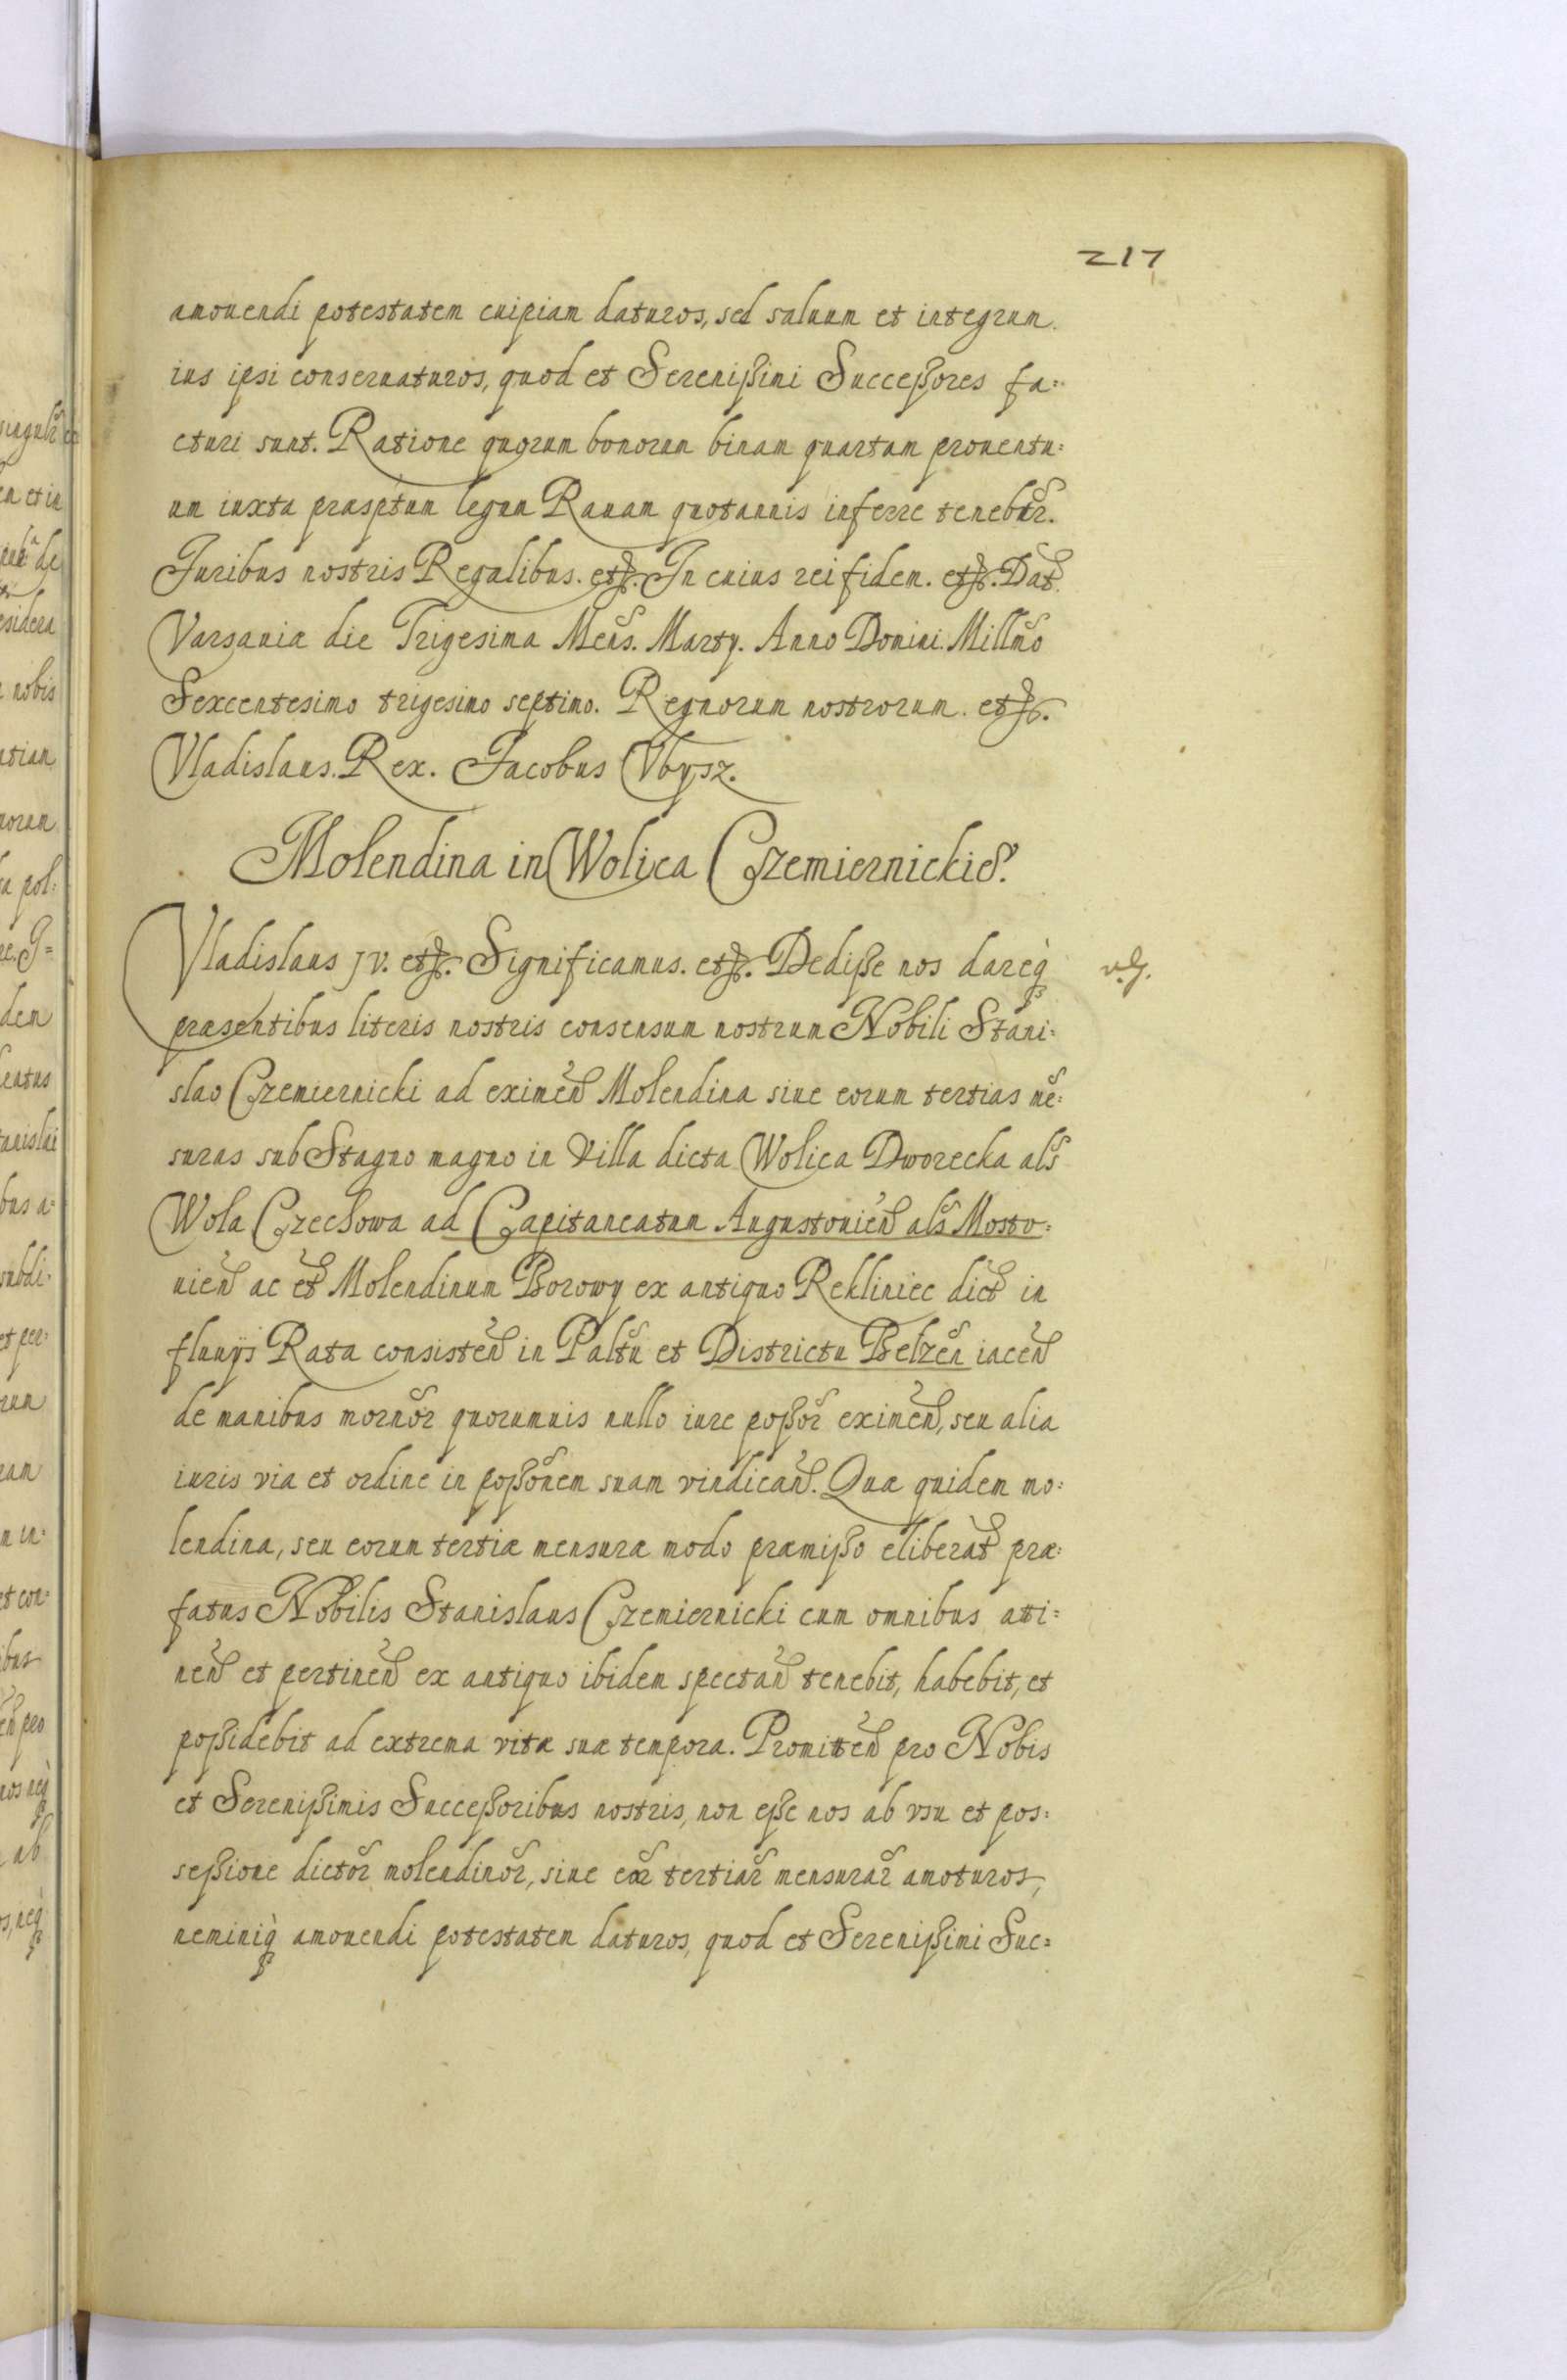 217
amouendi potestatem cuipiam daturos, sed saluum et integrum
ius ipsi conseruaturos, quod et Serenißimi Succeßores fa=
cturi sunt. Ratione quorum bonorum binam quartam prouentu=
um iuxta prasptum legum Rauam quotannis inferre tenebũr.
Juribus nostris Regalibus. etc. In cuius rei fidem. etc. Dat̃
Varsauiæ die Trigesima Mens̃. Martÿ. Anno Domini. Millm̃o
Sexcentesimo trigesimo septimo. Regnorum nostrorum. etc.
Vladislaus. Rex. Jacobus Vbysz.
Molendina in Wolica Czemiernickie.
Vladislaus jv. etc. Significamus. etc. Dediße nos dareq̀
præsentibus literis nostris consensum nostrum Nobili Stani=
slao Czemiernicki ad eximeñ Molendina siue eorum tertias mẽ=
suras sub Stagno magno in Villa dicta Wolica Dworecka als̃
Wola Czechowa ad Capitaneatum Augustouień als̃ Mosto=
uień ac et̃ Molendinum Borowy ex antiquo Rekliniec dict̃ in
fluuÿs Rata consisteñ in Palt̃u et Districtu Belzeñ iaceñ
de manibus mornõr quorumuis nullo iure poßor̃ eximeñ, seu alia
iuris via et ordine in poßõnem suam vindicañ. Quæ quidem mo=
lendina, seu eorum tertiæ mensuræ modo præmißo eliberat̃ præ=
fatus Nobilis Stanislaus Czemiernicki cum omnibus atti=
neñ et pertineñ ex antiquo ibidem spectañ tenebit, habebit, et
poßidebit ad extrema vitæ suæ tempora. Promitteñ pro Nobis
et Serenißimis Succeßoribus nostris, non eße nos ab vsu et pos=
seßione dictor̃ molendinor̃, siue eor̃ tertiar̃ mensurar̃ amoturos,
neminiq̀ amouendi potestatem daturos, quod et Serenißimi Suc=